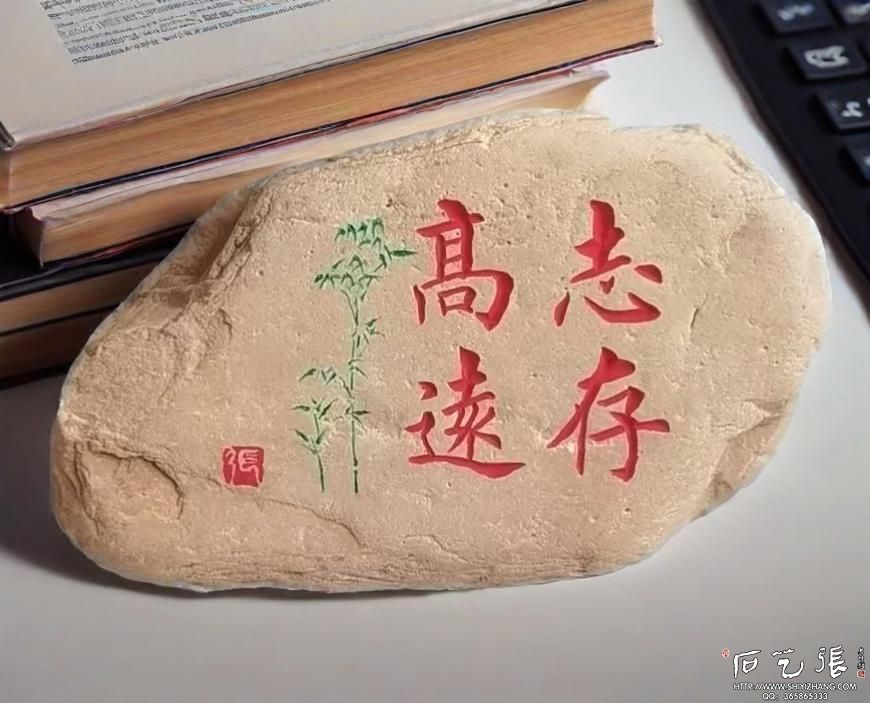 志存
高遠
張
石艺張
HTTP://WWW.SHIYIZHANG.COM
QQ: 365865333